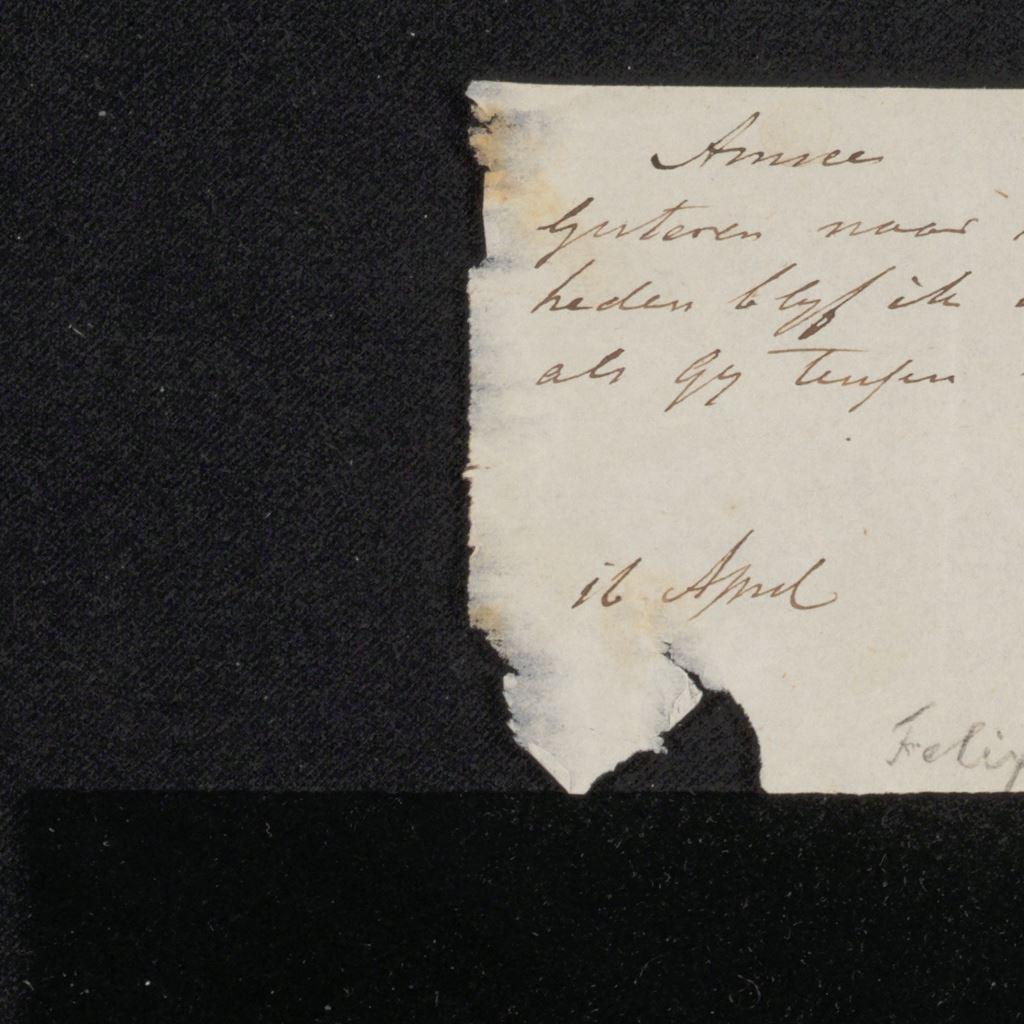 Amice
Gisteren naar
heden blyf ik
als Gy tusschen
16 April
Felix